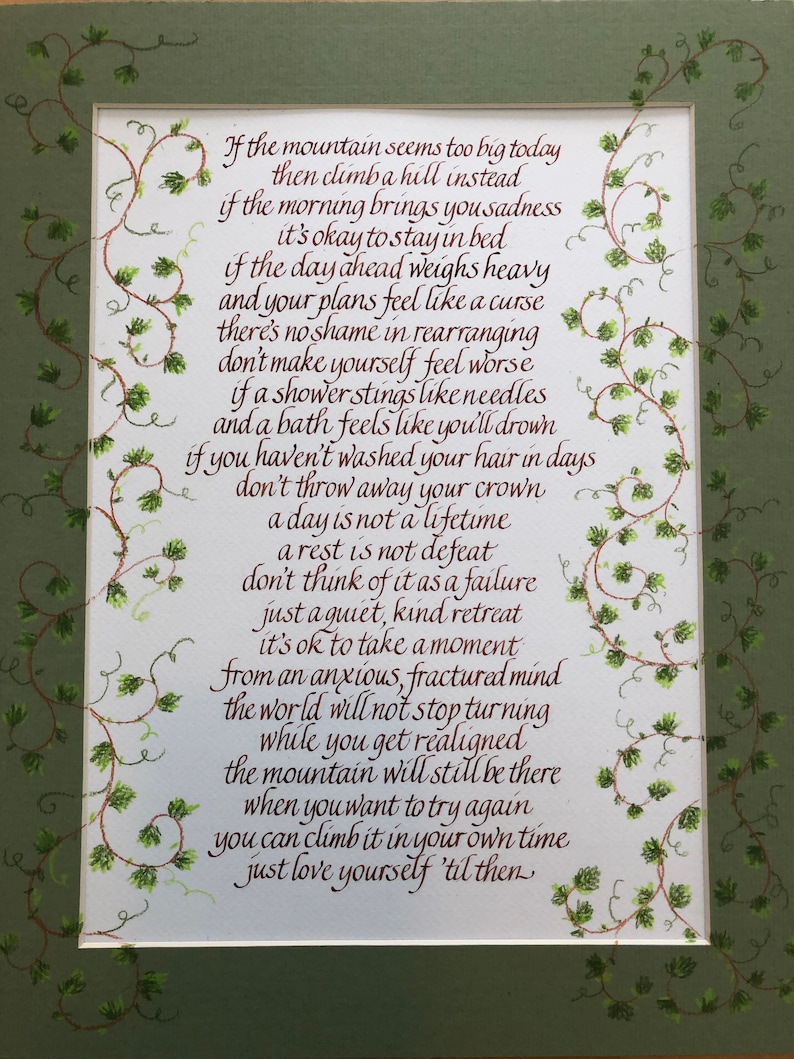 If the mountain seems too big today
then climb a hill instead
if the morning brings you sadness
it's okay to stay in bed
if the day ahead weighs heavy
and your plans feel like a curse
there's no shame in rearranging
don't make yourself feel worse
if a shower stings like needles
and a bath feels like you'll drown
if you haven't washed your hair in days
don't throw away your crown
a day is not a lifetime
a rest is not defeat
don't think of it as a failure
just a quiet, kind retreat
it's ok to take a moment
from an anxious, fractured mind
the world will not stop turning
while you get realigned
the mountain will still be there
when you want to try again
you can climb it in your own time
just love yourself 'til then